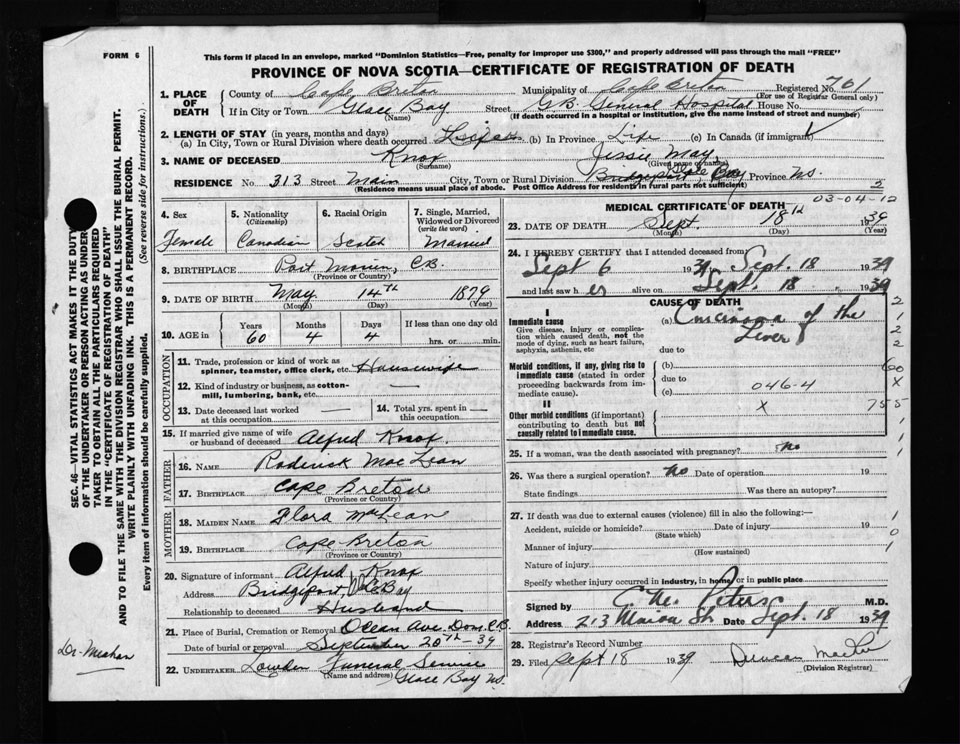 FORM 6
This form if placed in an envelope, marked "Dominion Statistics—Free, penalty for improper use $300," and properly addressed will pass through the mail "FREE"
PROVINCE OF NOVA SCOTIA—CERTIFICATE OF REGISTRATION OF DEATH
1. PLACE OF DEATH
County of Cape Breton Municipality of Cape Breton Registered No. 701
(For use of Registrar General only)
If in City or Town Glace Bay Street G.B. General Hospital House No.
(Name) (If death occurred in a hospital or institution, give the name instead of street and number)
2. LENGTH OF STAY (in years, months and days)
(a) In City, Town or Rural Division where death occurred (b) In Province Life (c) In Canada (if immigrant)
3. NAME OF DECEASED Knox Jessie May
(Surname) (Given name or names)
RESIDENCE No. 313 Street Main City, Town or Rural Division Bridgeport, Glace Bay Province N.S.
(Residence means usual place of abode. Post Office Address for residents in rural parts not sufficient) 2
4. Sex
Female
5. Nationality (Citizenship)
Canadian
6. Racial Origin
Scotch
7. Single, Married, Widowed or Divorced (write the word)
Married
8. BIRTHPLACE Port Morien, C.B.
(Province or Country)
9. DATE OF BIRTH May 14th 1879
(Month) (Day) (Year)
10. AGE in
Years Months Days If less than one day old
60 4 4 hrs. or min.
OCCUPATION
11. Trade, profession or kind of work as spinner, teamster, office clerk, etc. Housewife
12. Kind of industry or business, as cotton-mill, lumbering, bank, etc.
13. Date deceased last worked at this occupation
14. Total yrs. spent in this occupation
15. If married give name of wife or husband of deceased Alfred Knox.
FATHER
16. NAME Roderick MacLean
17. BIRTHPLACE Cape Breton
(Province or Country)
MOTHER
18. MAIDEN NAME Flora MacLean
19. BIRTHPLACE Cape Breton
(Province or Country)
20. Signature of informant Alfred Knox
Address Bridgeport, Gl. Bay
Relationship to deceased Husband
21. Place of Burial, Cremation or Removal Ocean Ave. Dom. C.B.
Date of burial or removal September 20th - 39
22. UNDERTAKER Lowden Funeral Service
(Name and address) Glace Bay N.S.
MEDICAL CERTIFICATE OF DEATH
03-04-12
23. DATE OF DEATH Sept. 18th 1939
(Month) (Day) (Year)
24. I HEREBY CERTIFY that I attended deceased from
Sept 6 1939 Sept. 18 1939
and last saw her alive on Sept. 18 1939
CAUSE OF DEATH
I
Immediate cause
Give disease, injury or complication which caused death, not the mode of dying, such as heart failure, asphyxia, asthenia, etc
(a) Carcinoma of the Liver
due to
Morbid conditions, if any, giving rise to immediate cause (stated in order proceeding backwards from immediate cause).
(b)
due to
(c) 046-4
II
Other morbid conditions (if important) contributing to death but not causally related to immediate cause.
X
2
1
2
2
60
X
755
1
1
1
1
0
1
25. If a woman, was the death associated with pregnancy? No
26. Was there a surgical operation? No Date of operation 19
State findings Was there an autopsy?
27. If death was due to external causes (violence) fill in also the following:—
Accident, suicide or homicide? Date of injury 19
(State which)
Manner of injury
(How sustained)
Nature of injury
Specify whether injury occurred in industry, in home, or in public place
Signed by Peters M.D.
Address 213 St. Date Sept. 18 1939
28. Registrar's Record Number
29. Filed Sept 18 1939 Duncan
(Division Registrar)
SEC. 46—VITAL STATISTICS ACT MAKES IT THE DUTY
OF THE UNDERTAKER OR PERSON ACTING AS UNDER-
TAKER TO OBTAIN ALL THE PARTICULARS REQUIRED
IN THE "CERTIFICATE OF REGISTRATION OF DEATH"
AND TO FILE THE SAME WITH THE DIVISION REGISTRAR WHO SHALL ISSUE THE BURIAL PERMIT.
WRITE PLAINLY WITH UNFADING INK. THIS IS A PERMANENT RECORD.
Every item of information should be carefully supplied. (See reverse side for instructions.)